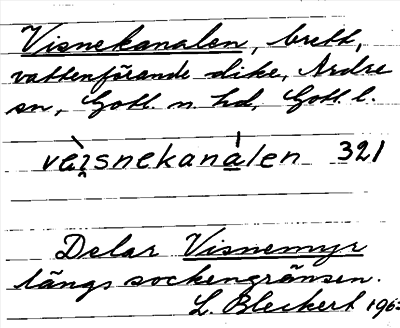 Visnekanalen, brett,
vattenförande dike, Ardre
sn, Gotl. n. hd, Gotl. l.
vèi̯snekanálen 321
Delar Visnemyr
längs sockengränsen.
L. Bleckert